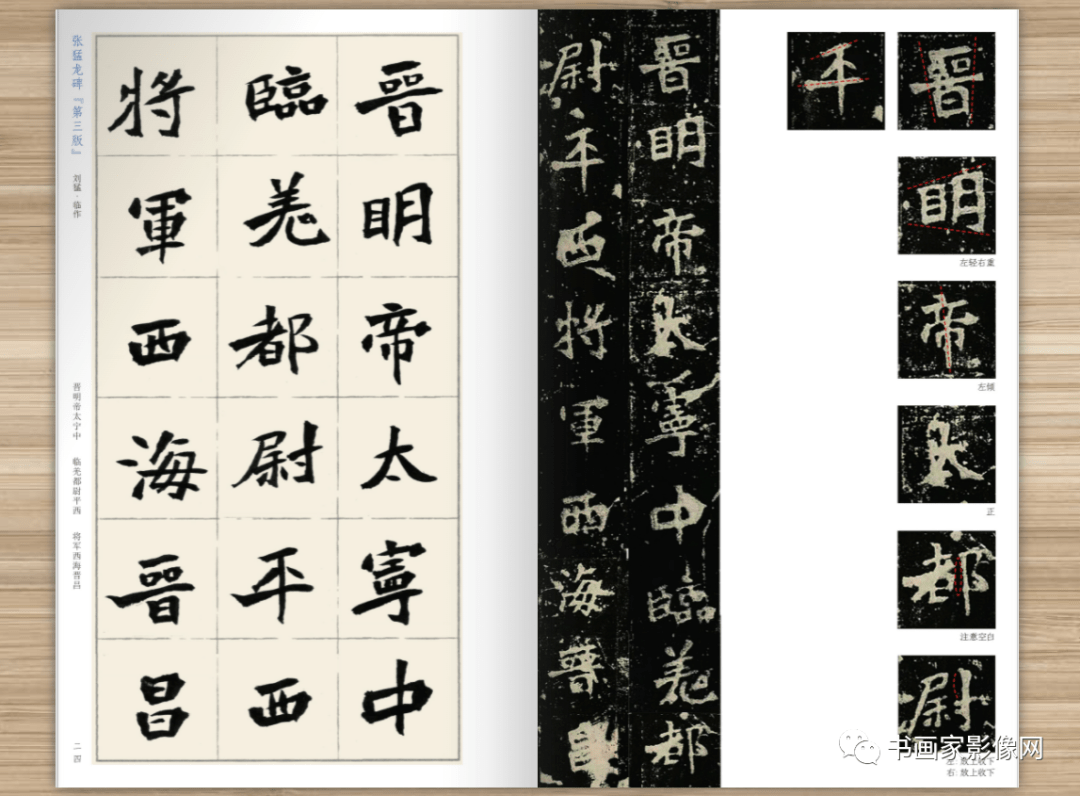 张猛龙碑『第三版』
刘猛·临作
晋明帝太宁中 临羌都尉平西 将军西海晋昌
二四
晉明帝太寧中
臨羌都尉平西
将軍西海晉昌
晉明帝太寧中臨羌都
尉平西将軍西海晉昌
晉
平
明
左轻右重
帝
左倾
太
正
都
注意空白
尉
右: 放上收下
书画家影像网